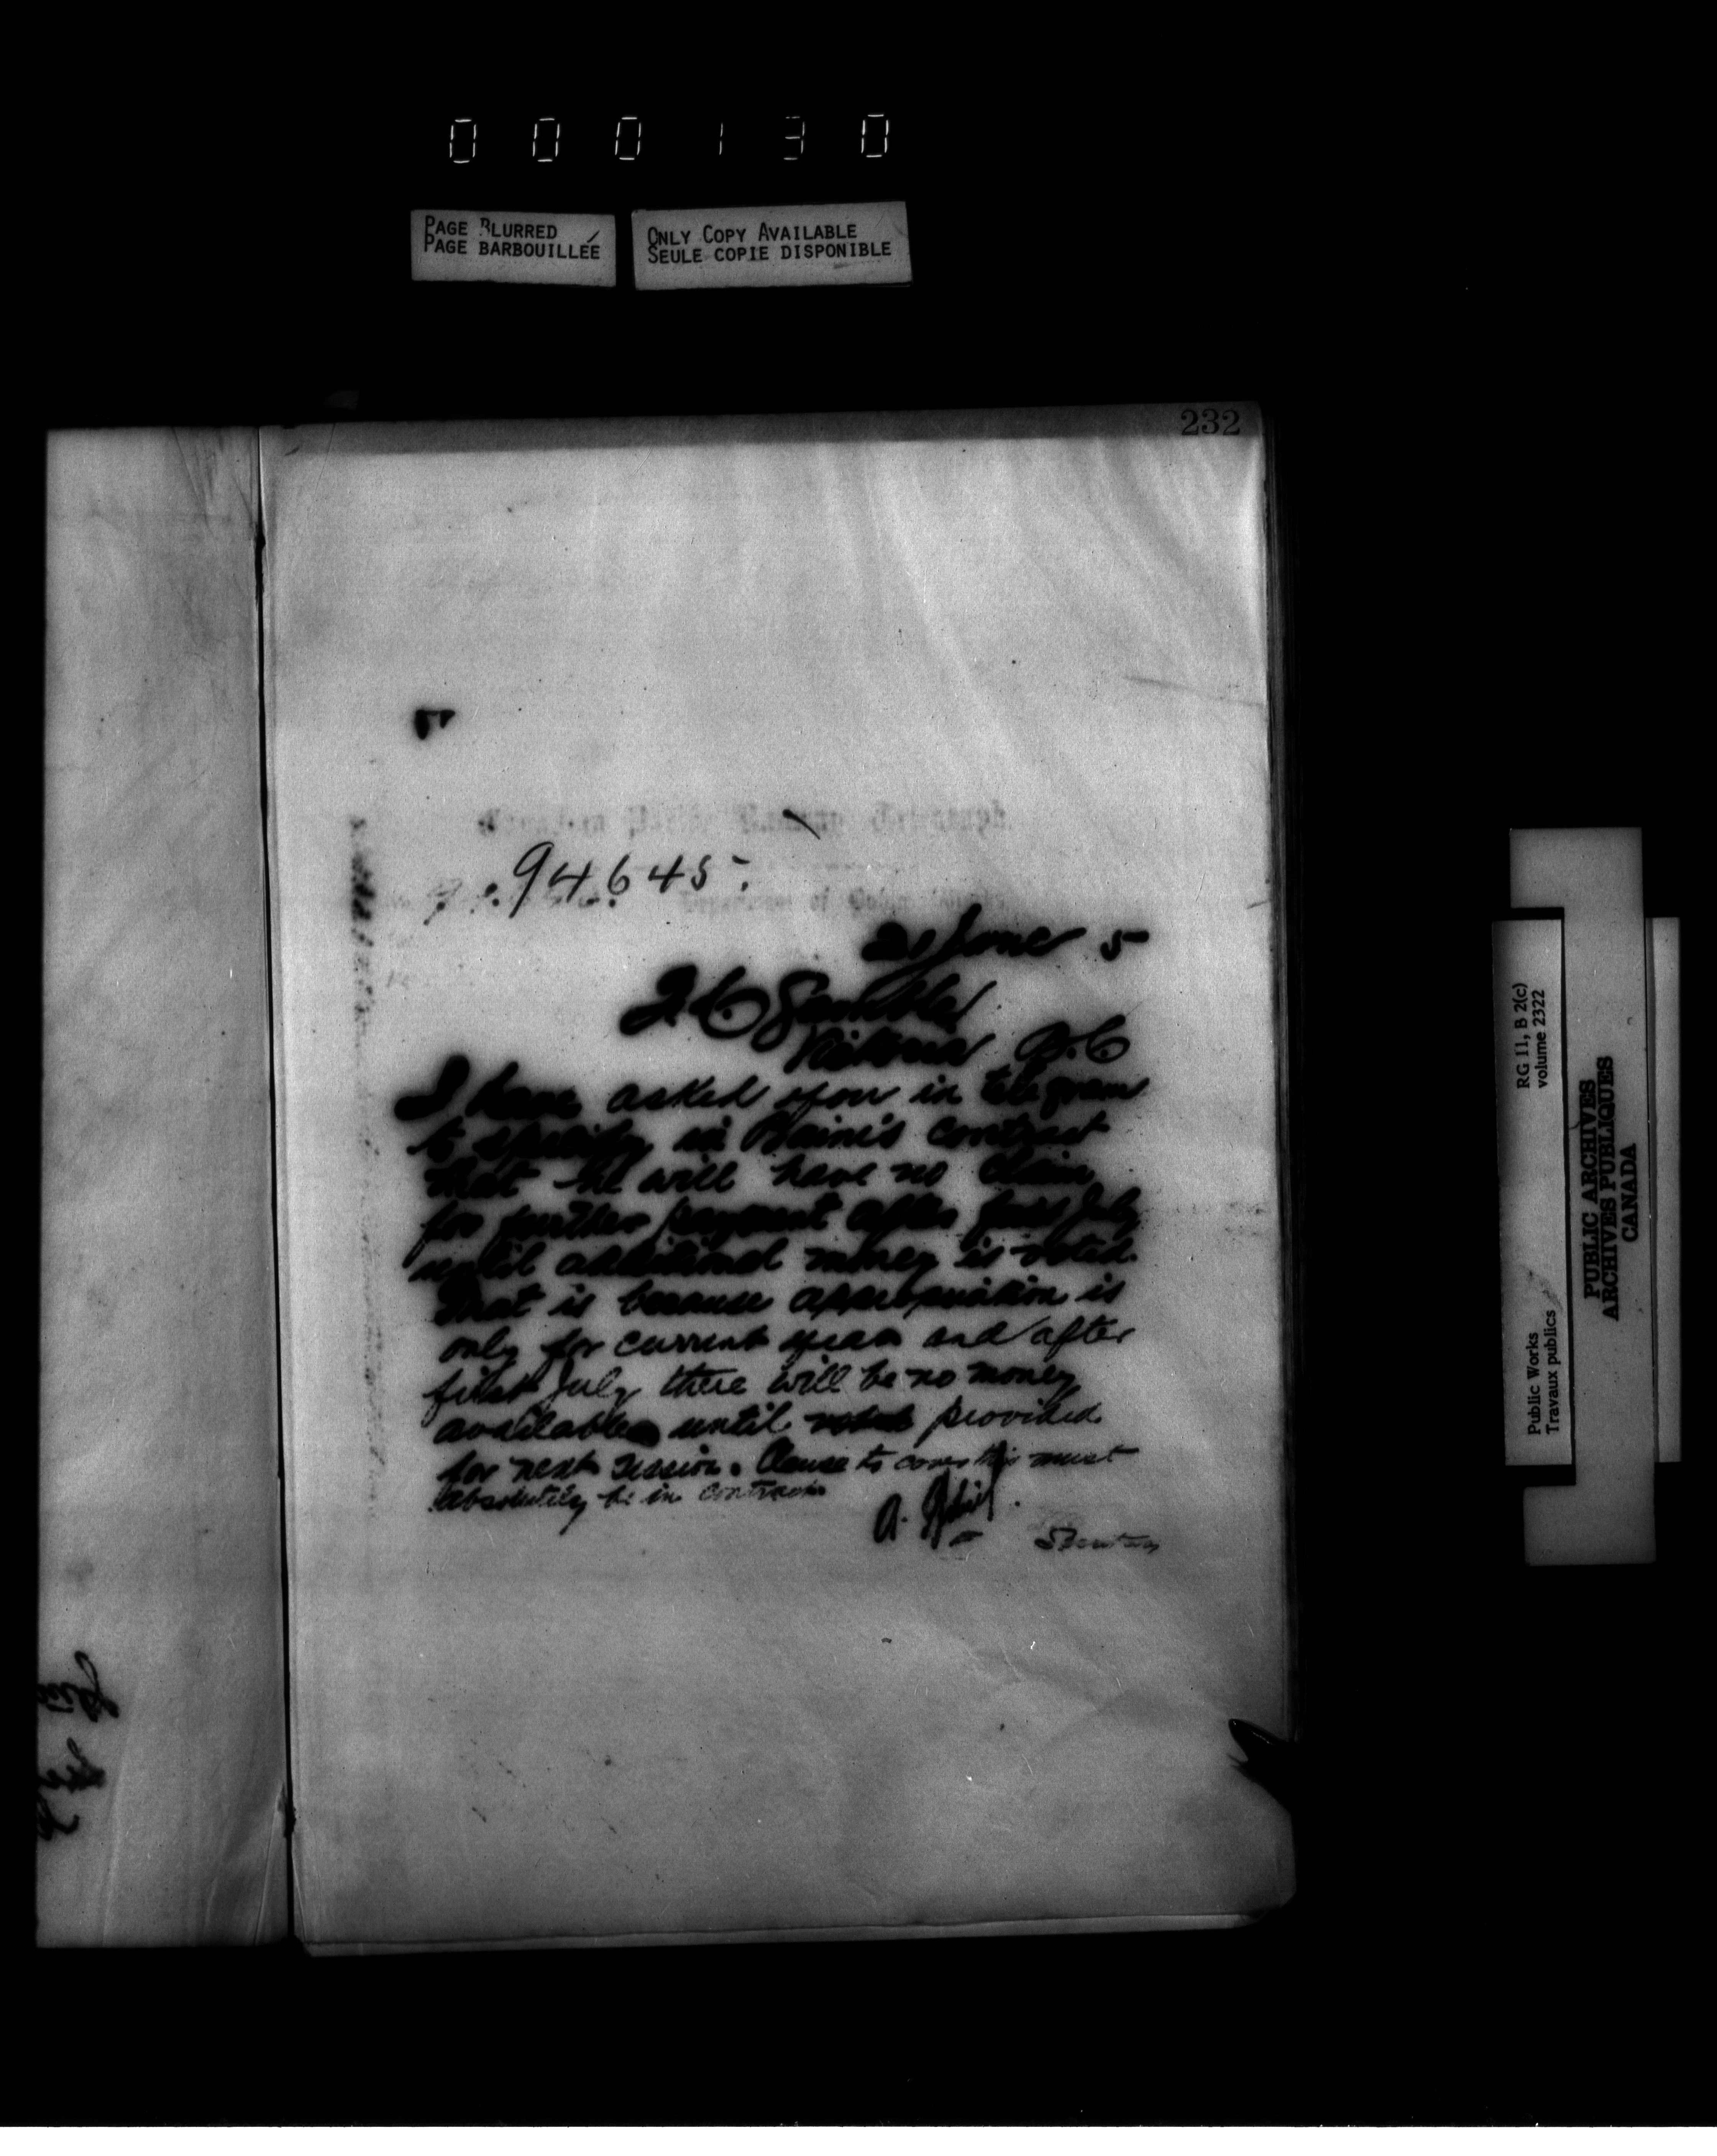 000130
PAGE BLURRED
PAGE BARBOUILLÉE
ONLY COPY AVAILABLE
SEULE COPIE DISPONIBLE
232
Canadian Pacific Railway Telegraph.
94645.
Department of Public Works
21 June 5
Gamble
Victoria B.C
I have asked you in telegram
to specify in Baine's contract
that he will have no claim
for further payment after first July
until additional money is voted.
That is because appropriation is
only for current year and after
first July there will be no money
available until voted provided
for next session. Clause to cover this must
absolutely be in contract
A.
Secretary
RG 11, B 2(c)
volume 2322
Public Works
Travaux publics
PUBLIC ARCHIVES
ARCHIVES PUBLIQUES
CANADA